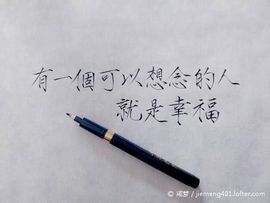 有一個可以想念的人
就是幸福
© 鸿梦 / jiemeng401.lofter.com